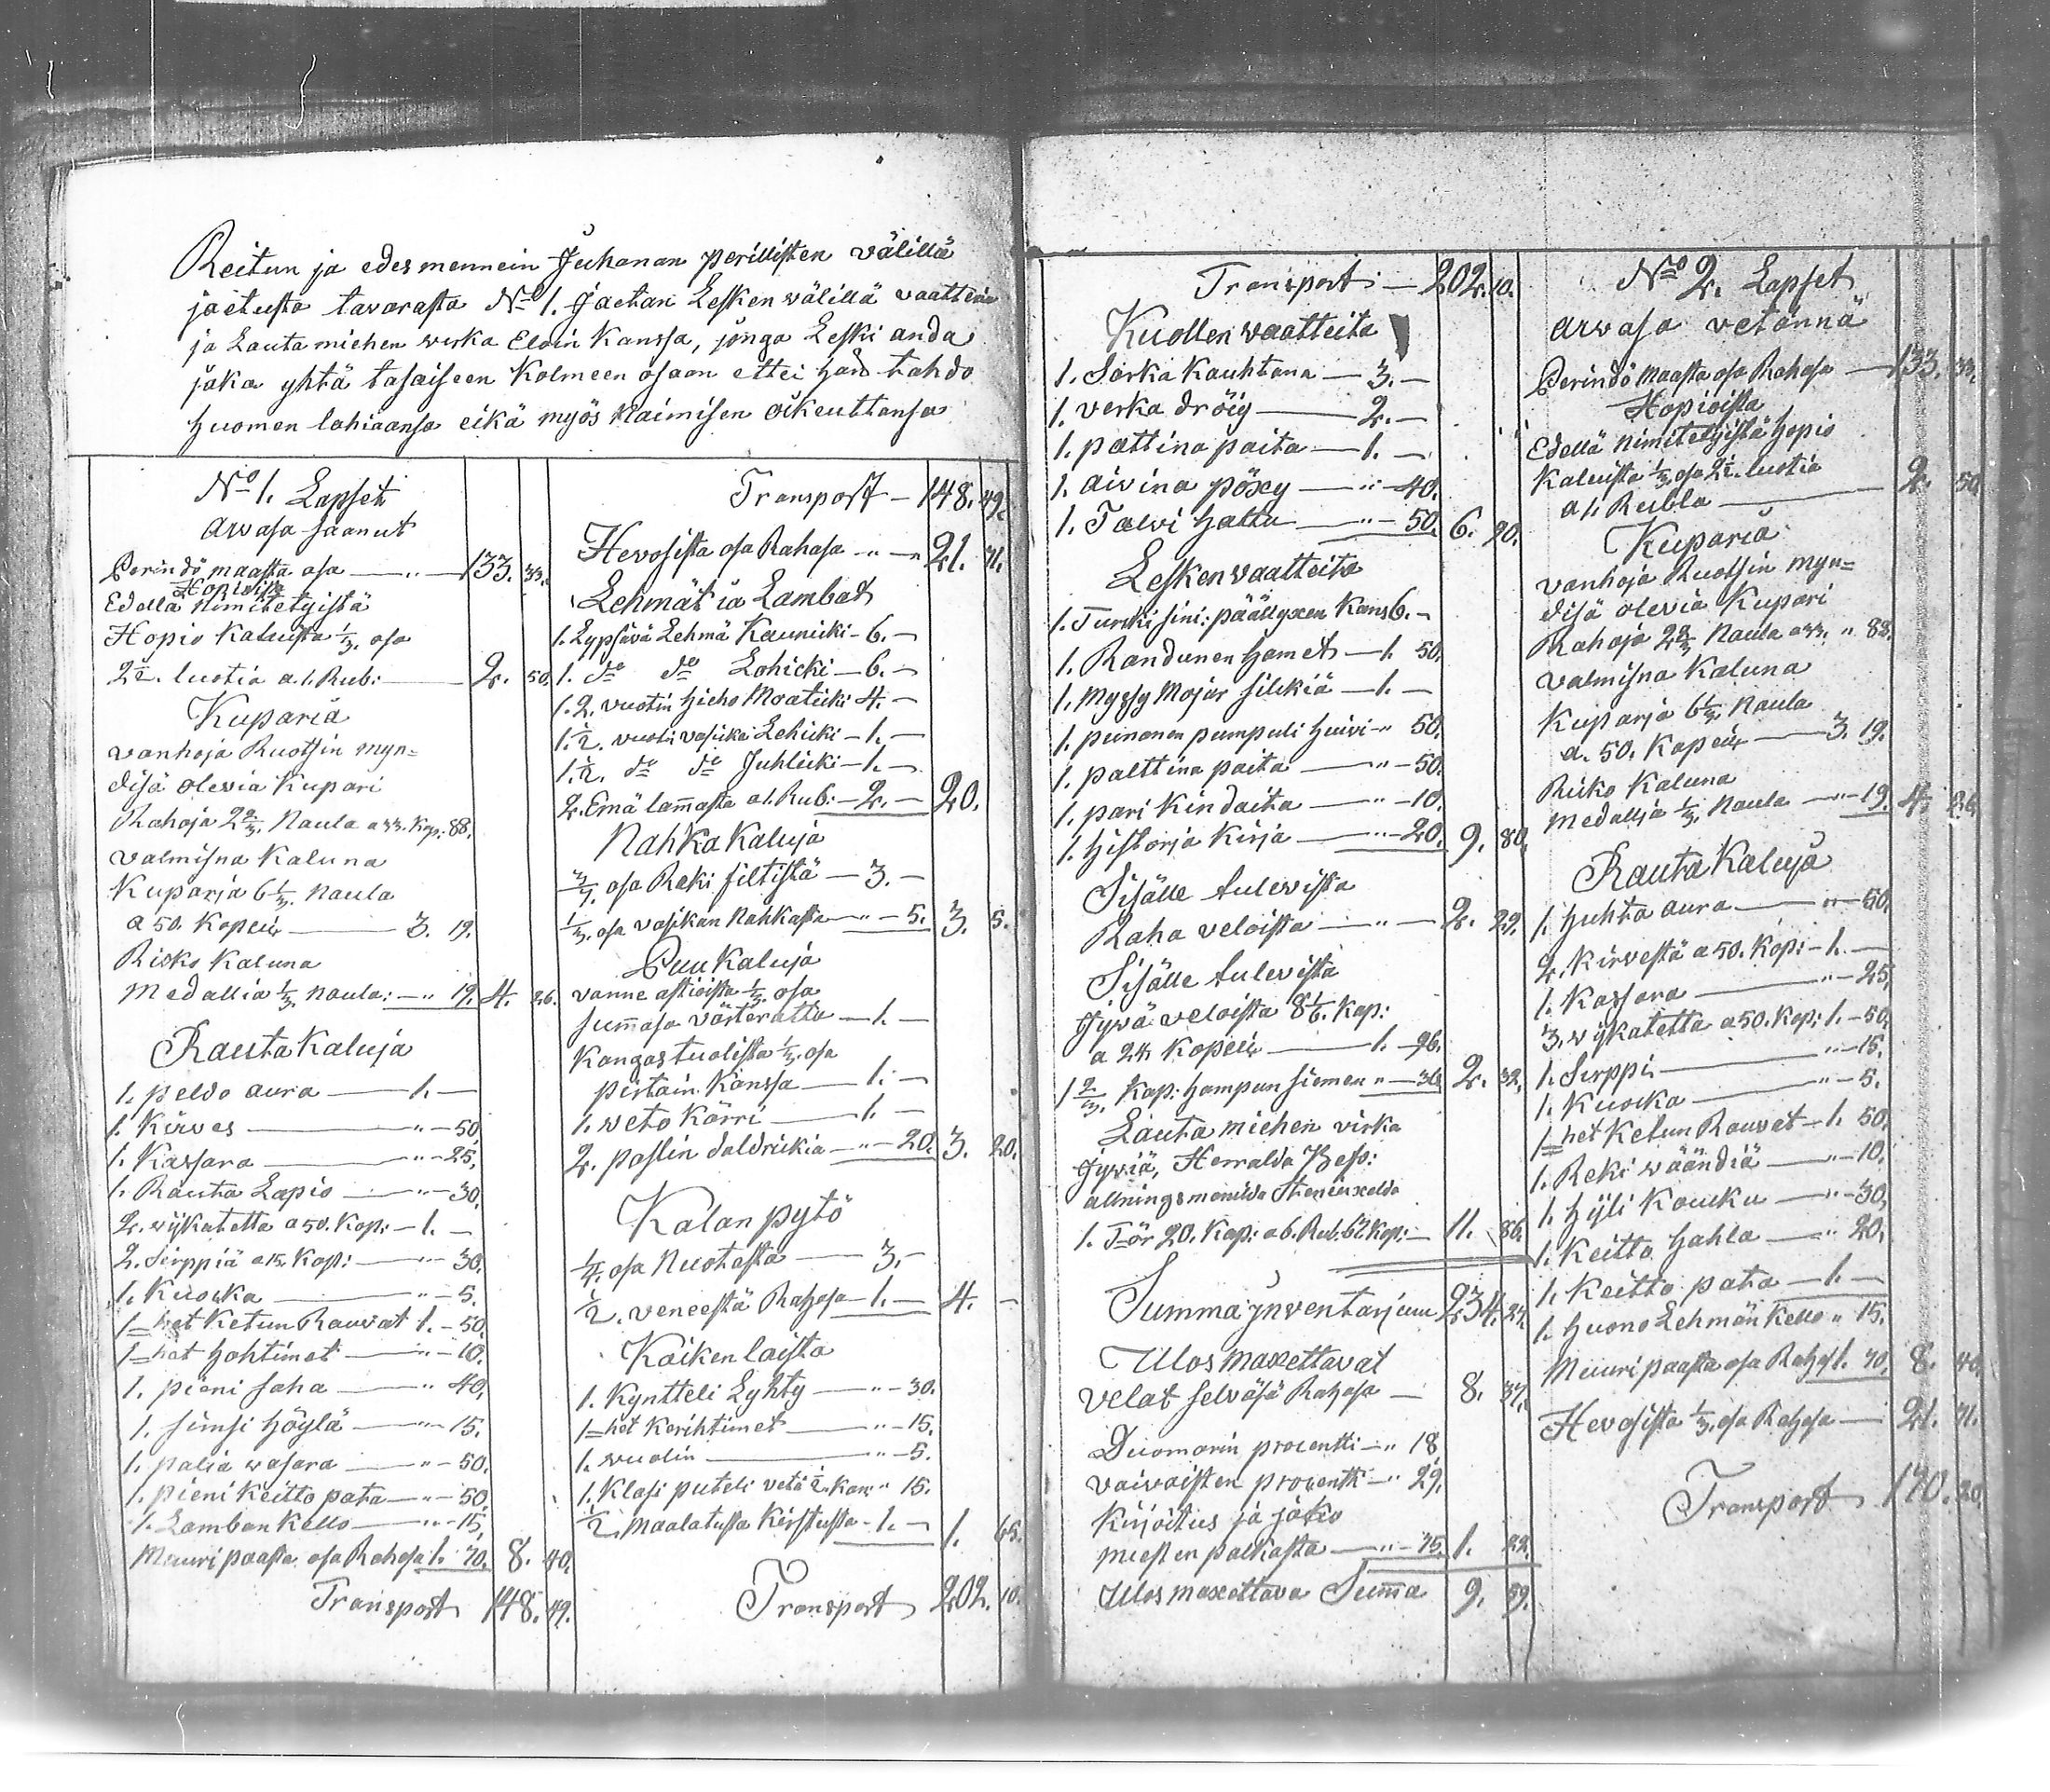 Reitun ja edesmennein Juhanan perillisten välillä
jaetusta tavarasta No 1. Jaetan Lesken wälillä vaattein
ja Lautamiehen wirka Eloin Kanssa, jonga Leski anda
jaka yhtä tasaiseen Kolmeen osaan ettei hän tahdo
huomen lahiaansa eikä myös Naimisen oikeuttansa
No 1. Lapset
arwasa saanut
Perindö maasta osa — " — 133. 33.
Hopioista
Edellä Nimitetyistä
Hopio Kaluista 1/3. osa
2 1/2. luotia a 1. Rub: — 2. 50.
Kuparia
vanhoja Ruotsin myn=
disä olevia Kupari
Rahoja 2 2/3. Naula a 33. Kop: 88.
valmisna Kaluna
Kuparia 6 1/3. Naula
a 50. Kopeix — 3. 19.
Risko Kaluna
Medallia 1/3. Naula: — " 19. 4. 26.
Rauta Kaluja
1. peldo aura — 1. —
1. Kirves — " — 50.
1. Kassara — " — 25.
1. Rauta Lapio — " — 30.
2. wijkatetta a 50. Kop: — 1. —
2. Sirppiä a 15. Kop: — " — 30.
1. Kuocka — " — 5.
1=het Ketun Rauvat 1. — 50.
1=het hohtimet — " — 10.
1. pieni saha — " 40.
1. simsi höylä — " 15.
1. palia wasara — " — 50.
1. pieni Keitto pata — " — 50.
1. Lamban Kello — " — 15.
Muuri paasta osa Rahasa 1. 70. 8. 40.
Transport 148. 49.
Transport — 148. 49.
Hevosista osa Rahasa " — " 21. 71.
Lehmät ja Lambat
1. Lypsävä Lehmä Kaunicki — 6. —
1. do do Lohicki — 6. —
1. 2. vuotin hieho Maaticki 4. —
1. 1/2. vuoti vasicka Lehicki — 1. —
1. 1/2. do do Juhlicki — 1. —
2. Emä lammasta a 1. Rub: — 2. — 20.
Nahka Kaluja
osa Reki filtistä — 3. —
1/3. osa vasikan Nahkasta — " — 5. 3. 5.
Puu Kaluja
vanne astioista 1/3. osa
summasa värterattu — 1. —
Kangastuolista 1/3. osa
pirtain Kanssa — 1. —
1. weto Kärri — 1. —
2. poslin daldrikia — " — 20. 3. 20.
Kalan pytö
1/4. osa Nuotasta — 3. —
1/2. veneestä Rahasa — 1. — 4. —
Kaikenlaista
1. Kyntteli Lyhty — " — 30.
1=het Kerihtimet — " — 15.
1. wuolin — " — 5.
1. Klasi puteli vetiä 1/2. kan: " 15.
1/2. Maalatusta Kirstusta — 1. — 1. 65.
Transport 202. 10.
Transport — 202. 10.
Kuollen vaatteita
1. Sarka Kauhtana — 3. —
1. verka dröig — 2. —
1. pattina paita — 1. —
1. aivina pöxy — " — 40.
1. Talvi hattu — " — 50. 6. 90.
Lesken vaatteita
1. Turcki sini: päällyxen Kans 6. —
1. Randunen hamet — 1. 50.
1. Myssy Mojar silckiä — 1. —
1. punanen pumpuli huivi — " 50.
1. palttina paita — " — 50.
1. pari Kindaita — " — 10.
1. historja Kirja — " — 20. 9. 80.
Sisälle tulewista
Raha veloista — " — 2. 29.
Sisälle tulewista
Jywä veloista 8 1/6. Kap:
a 24 Kopeix — 1. 96.
1 2/3. Kap: hampun siemen " — 36. 2. 32.
Lautamiehen virka
Jyviä, Herralda
1. Tör 20. Kap: a 6. Rub: 62 Kop: — 11. 86.
Summa Jnventarjum 234. 27.
Ulos maxettavat
velat selväsä Rahasa — 8. 37.
Duomarin procentti — " 18
vaivaisten procentti — " 29.
Kirjoitus ja jako
miesten palkasta — " — 75. 1. 22.
Ulos maxettava Summa 9. 59.
No 2. Lapset
arwasa vetännä
Perindö Maasta osa Rahasa — 133. 33.
Hopioista
Edellä Nimitetyistä hopio
Kaluista 1/3. osa 2 1/2. luotia
a 1. Rubla — 2. 50.
Kuparia
vanhoja Ruotsin myn=
disä olevia Kupari
Rahoja 2 2/3. Naula a 33. " 88.
valmisna Kaluna
Kuparja 6 1/3. Naula
a. 50. Kopeix — 3. 19.
Risko Kaluna
Medallja 1/3. Naula — " — 19. 4. 26.
Rauta Kaluja
1. huhta aura — " — 50.
2. Kirvestä a 50. Kop: — 1. —
1. Kassara — " — 25.
3. wijkatetta a 50. Kop: 1. — 50.
1. Sirppi — " — 15.
1. Kuocka — " — 5.
1=het Ketun Rauvat — 1. 50.
1. Reki wäändiä — " — 10.
1. hijli Koucku — " — 30.
1. Keitto hahla — " 20.
1. Keitto pata — 1. —
1. huono Lehmän Kello " 15.
Muuri paasta osa Rahasa 1. 70. 8. 40.
Hevosista 1/3. osa Rahasa — 21. 71.
Transport 170. 20.